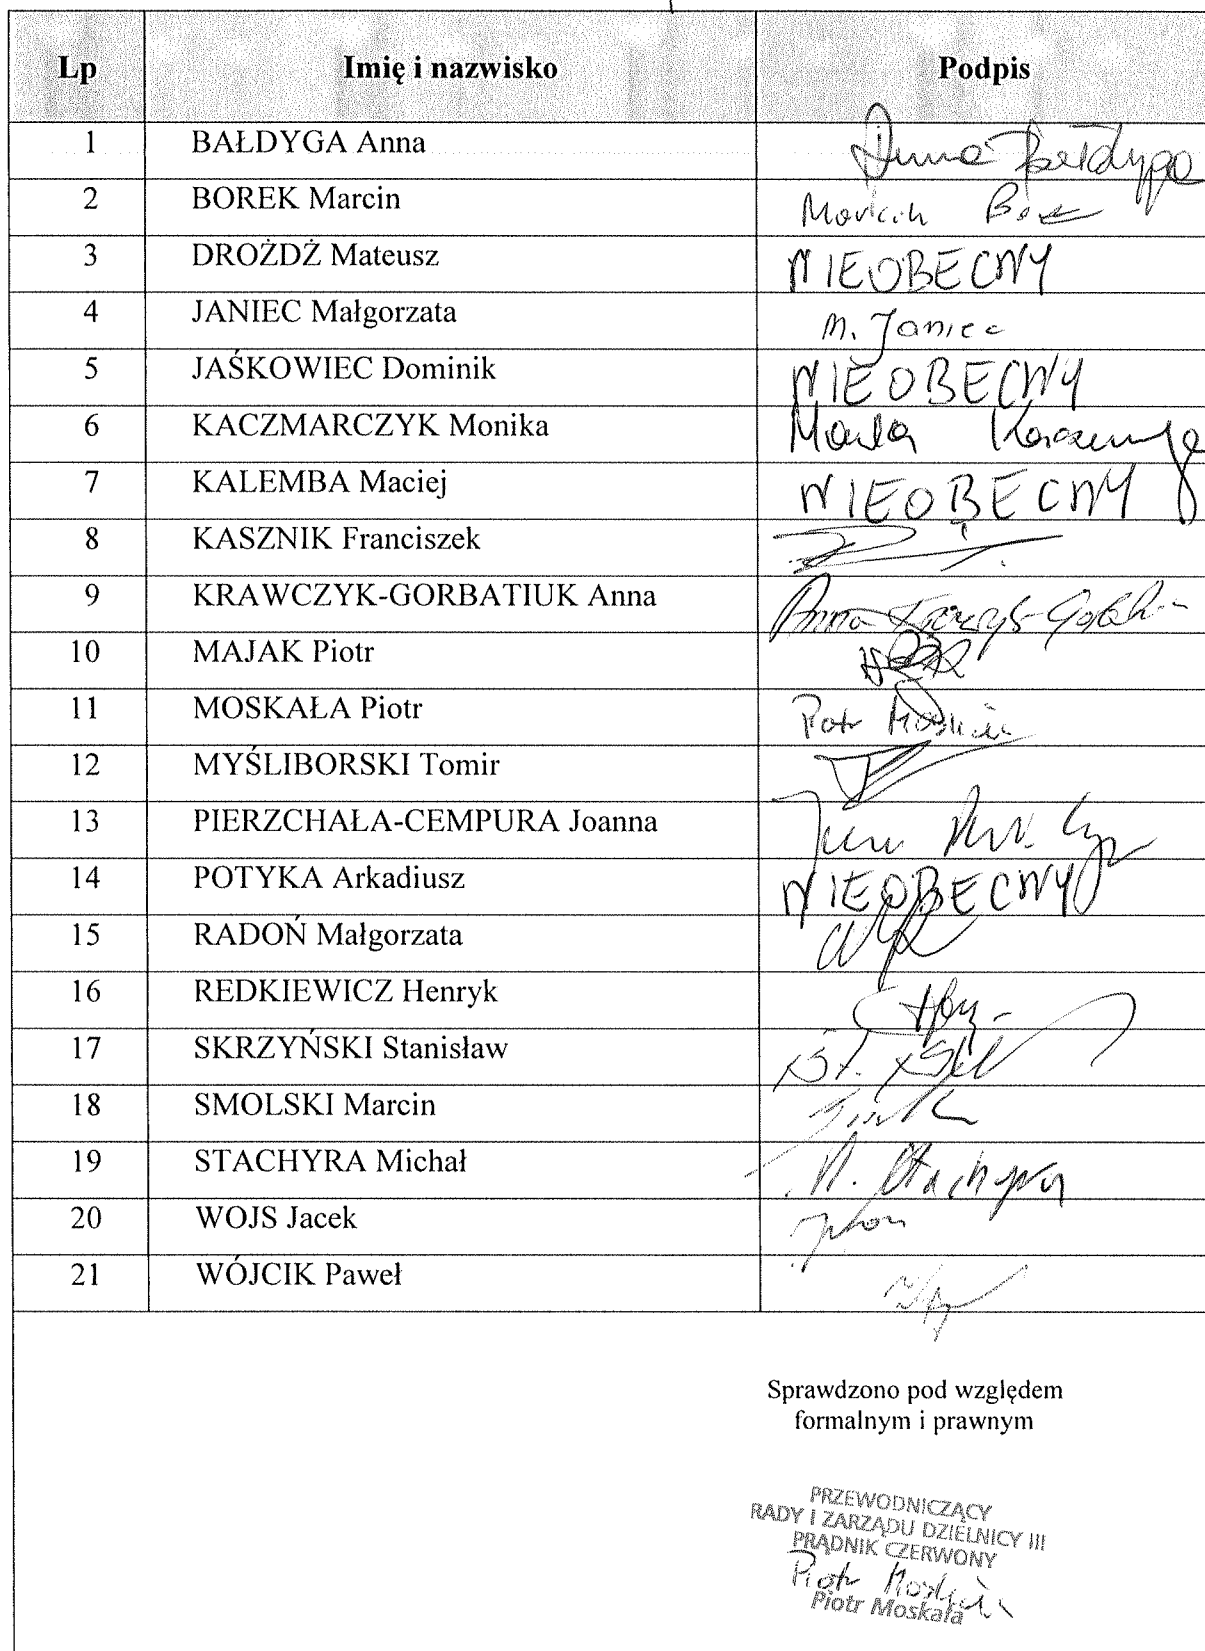 Lp Imię i nazwisko Podpis
1 BAŁDYGA Anna Anna Bałdyga
2 BOREK Marcin Marcin
3 DROŻDŻ Mateusz NIEOBECNY
4 JANIEC Małgorzata M. Janiec
5 JAŚKOWIEC Dominik NIEOBECNY
6 KACZMARCZYK Monika
7 KALEMBA Maciej NIEOBECNY
8 KASZNIK Franciszek
9 KRAWCZYK-GORBATIUK Anna Anna
10 MAJAK Piotr
11 MOSKAŁA Piotr Piotr
12 MYŚLIBORSKI Tomir
13 PIERZCHAŁA-CEMPURA Joanna
14 POTYKA Arkadiusz NIEOBECNY
15 RADOŃ Małgorzata
16 REDKIEWICZ Henryk
17 SKRZYŃSKI Stanisław
18 SMOLSKI Marcin
19 STACHYRA Michał M. Stachyra
20 WOJS Jacek
21 WÓJCIK Paweł
Sprawdzono pod względem
formalnym i prawnym
PRZEWODNICZĄCY
RADY I ZARZĄDU DZIELNICY III
PRĄDNIK CZERWONY
Piotr
Piotr Moskała